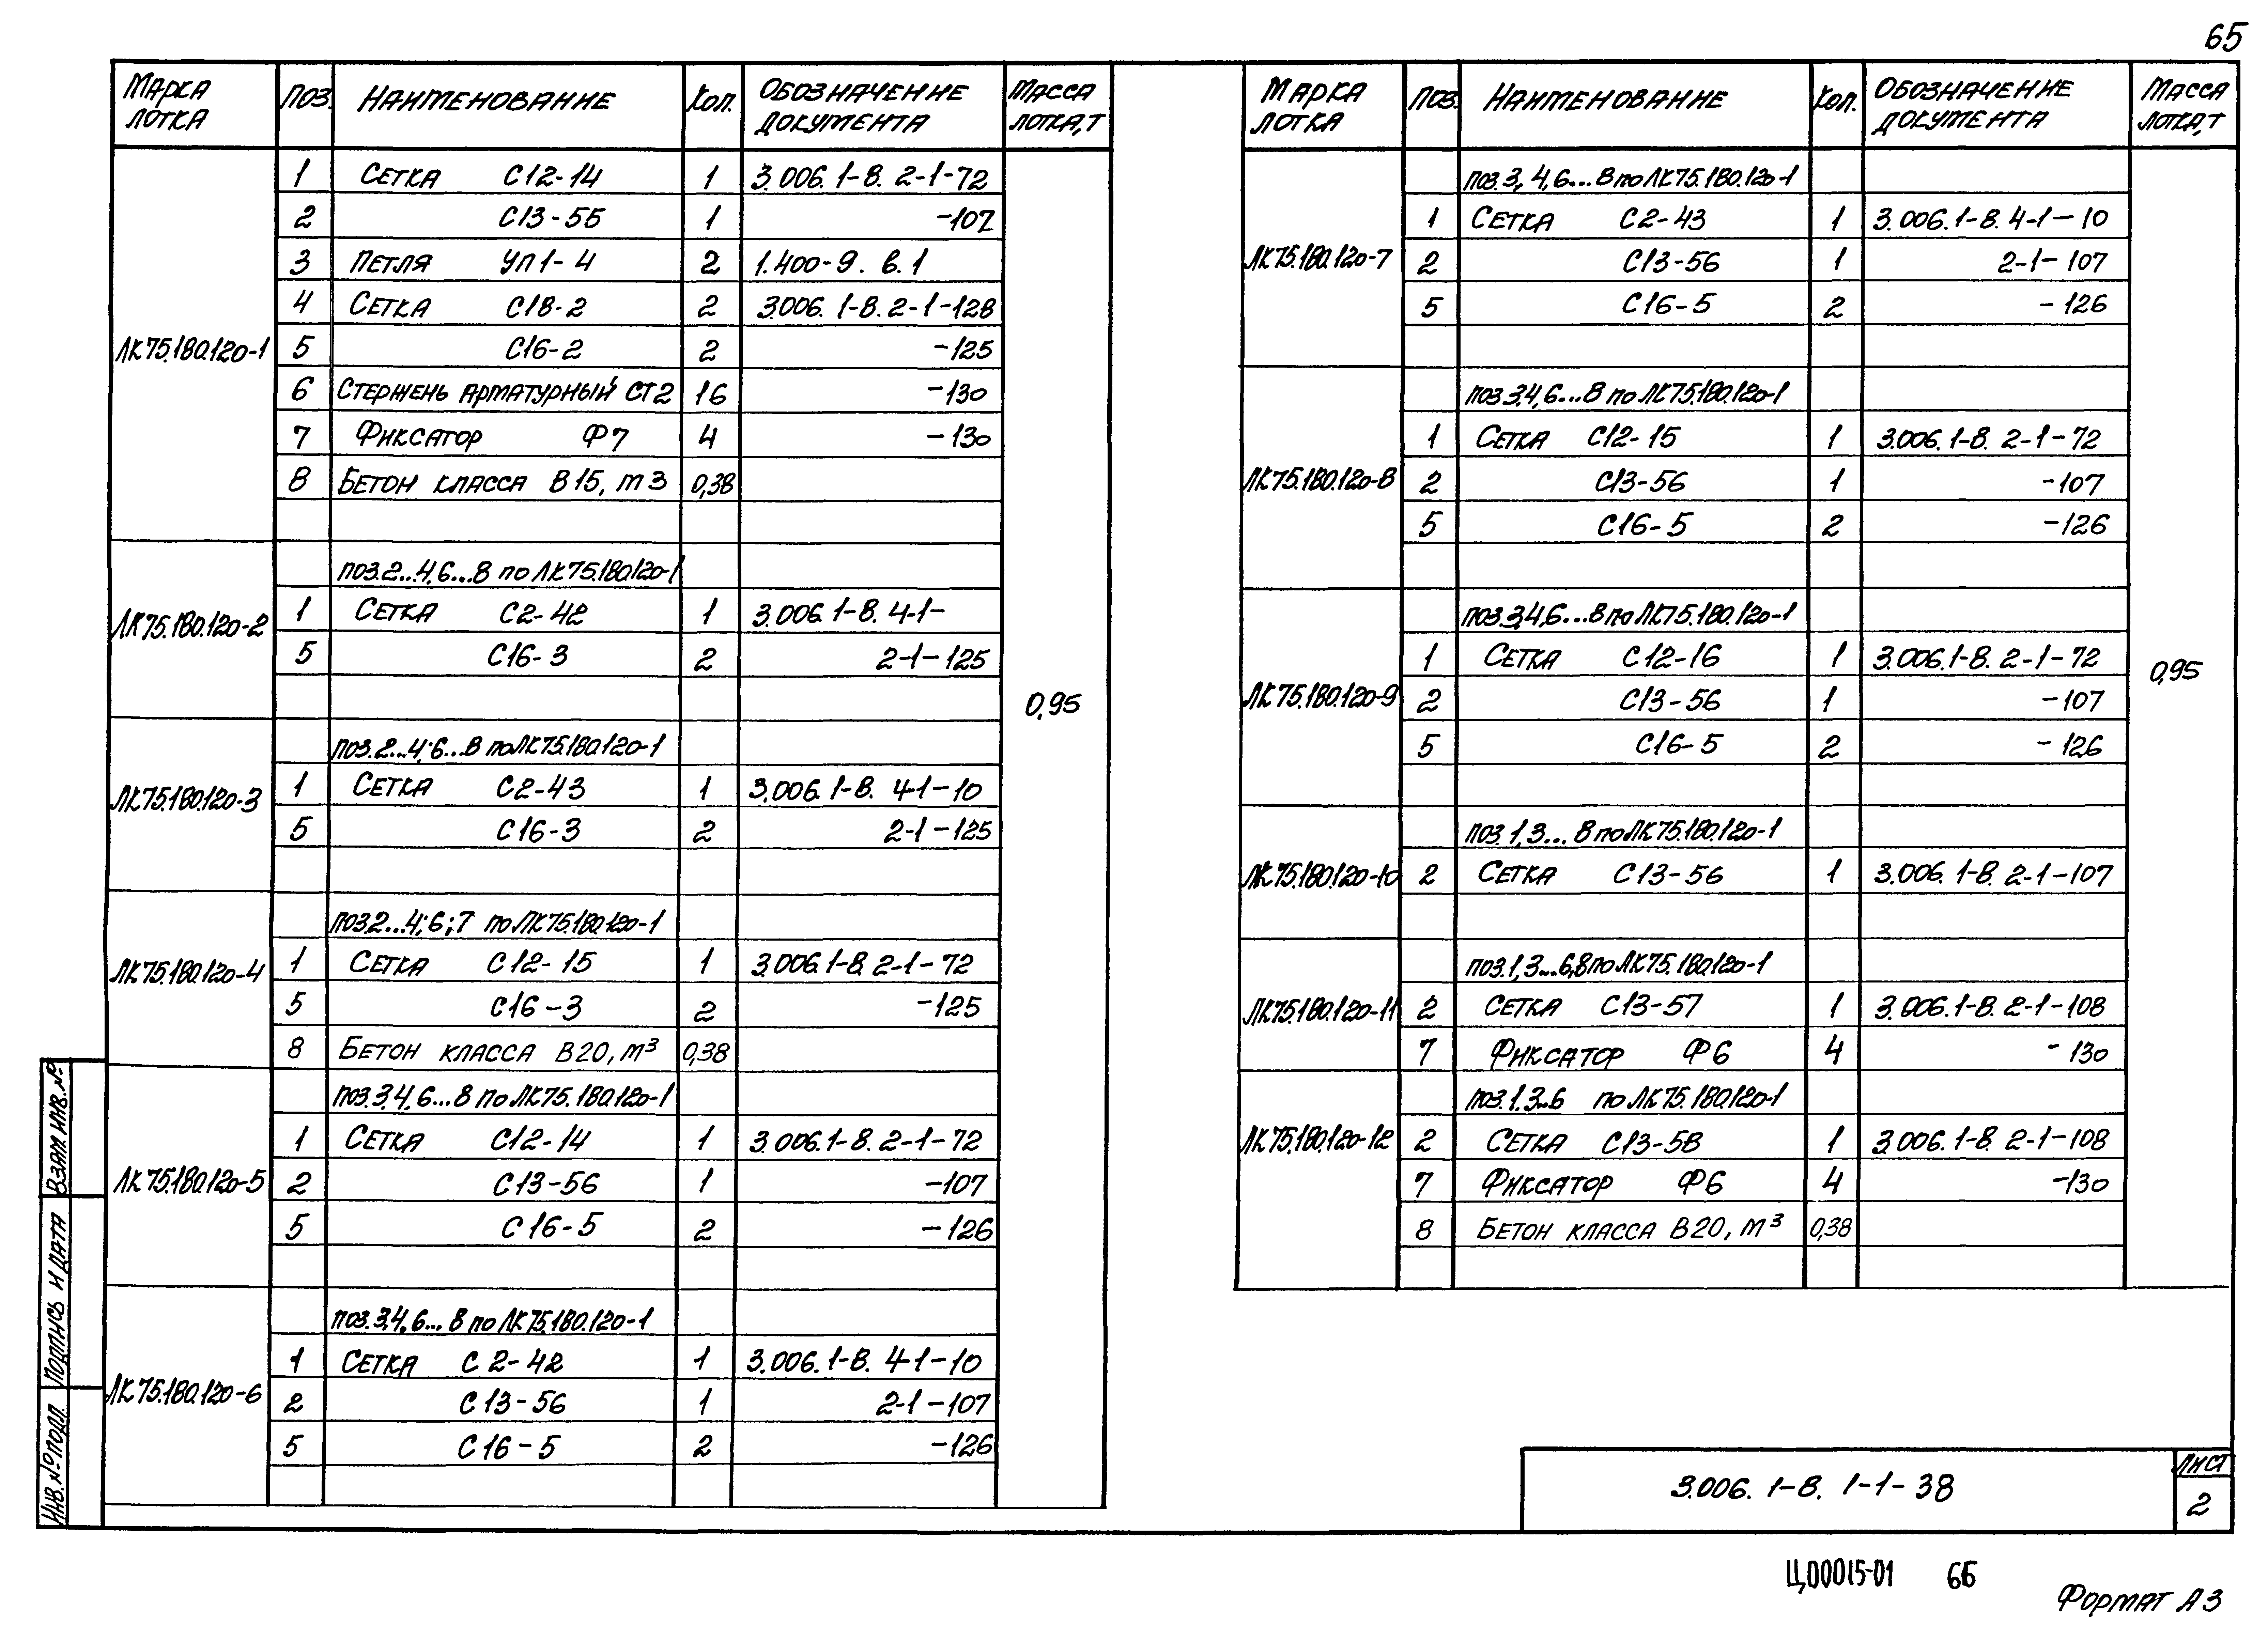 65
Марка лотка | Поз. | Наименование | Кол. | Обозначение документа | Масса лотка, т
ЛК75.180.120-1
1 | Сетка С12-14 | 1 | 3.006.1-8. 2-1-72
2 | С13-55 | 1 | -107
3 | Петля УП1-4 | 2 | 1.400-9. в.1
4 | Сетка С18-2 | 2 | 3.006.1-8. 2-1-128
5 | С16-2 | 2 | -125
6 | Стержень арматурный СТ2 | 16 | -130
7 | Фиксатор Ф7 | 4 | -130
8 | Бетон класса В15, м3 | 0,38
ЛК75.180.120-2
поз.2...4,6...8 по ЛК75.180.120-1
1 | Сетка С2-42 | 1 | 3.006.1-8. 4-1-
5 | С16-3 | 2 | 2-1-125
0,95
ЛК75.180.120-3
поз.2...4;6...8 по ЛК75.180.120-1
1 | Сетка С2-43 | 1 | 3.006.1-8. 4-1-10
5 | С16-3 | 2 | 2-1-125
ЛК75.180.120-4
поз.2...4;6;7 по ЛК75.180.120-1
1 | Сетка С12-15 | 1 | 3.006.1-8. 2-1-72
5 | С16-3 | 2 | -125
8 | Бетон класса В20, м³ | 0,38
ЛК75.180.120-5
поз.3,4,6...8 по ЛК75.180.120-1
1 | Сетка С12-14 | 1 | 3.006.1-8. 2-1-72
2 | С13-56 | 1 | -107
5 | С16-5 | 2 | -126
ЛК75.180.120-6
поз.3,4,6...8 по ЛК75.180.120-1
1 | Сетка С2-42 | 1 | 3.006.1-8. 4-1-10
2 | С13-56 | 1 | 2-1-107
5 | С16-5 | 2 | -126
Марка лотка | Поз. | Наименование | Кол. | Обозначение документа | Масса лотка, т
ЛК75.180.120-7
поз.3,4,6...8 по ЛК75.180.120-1
1 | Сетка С2-43 | 1 | 3.006.1-8. 4-1-10
2 | С13-56 | 1 | 2-1-107
5 | С16-5 | 2 | -126
ЛК75.180.120-8
поз.3,4,6...8 по ЛК75.180.120-1
1 | Сетка С12-15 | 1 | 3.006.1-8. 2-1-72
2 | С13-56 | 1 | -107
5 | С16-5 | 2 | -126
ЛК75.180.120-9
поз.3,4,6...8 по ЛК75.180.120-1
1 | Сетка С12-16 | 1 | 3.006.1-8. 2-1-72
0,95
2 | С13-56 | 1 | -107
5 | С16-5 | 2 | -126
ЛК75.180.120-10
поз.1,3...8 по ЛК75.180.120-1
2 | Сетка С13-56 | 1 | 3.006.1-8. 2-1-107
ЛК75.180.120-11
поз.1,3...6,8 по ЛК75.180.120-1
2 | Сетка С13-57 | 1 | 3.006.1-8. 2-1-108
7 | Фиксатор Ф6 | 4 | -130
ЛК75.180.120-12
поз.1.3...6 по ЛК75.180.120-1
2 | Сетка С13-58 | 1 | 3.006.1-8 2-1-108
7 | Фиксатор Ф6 | 4 | -130
8 | Бетон класса В20, м³ | 0,38
Взам. инв. №
Подпись и дата
Инв. № подл.
3.006.1-8. 1-1-38
Лист
2
Ц00015-01 66
Формат А3